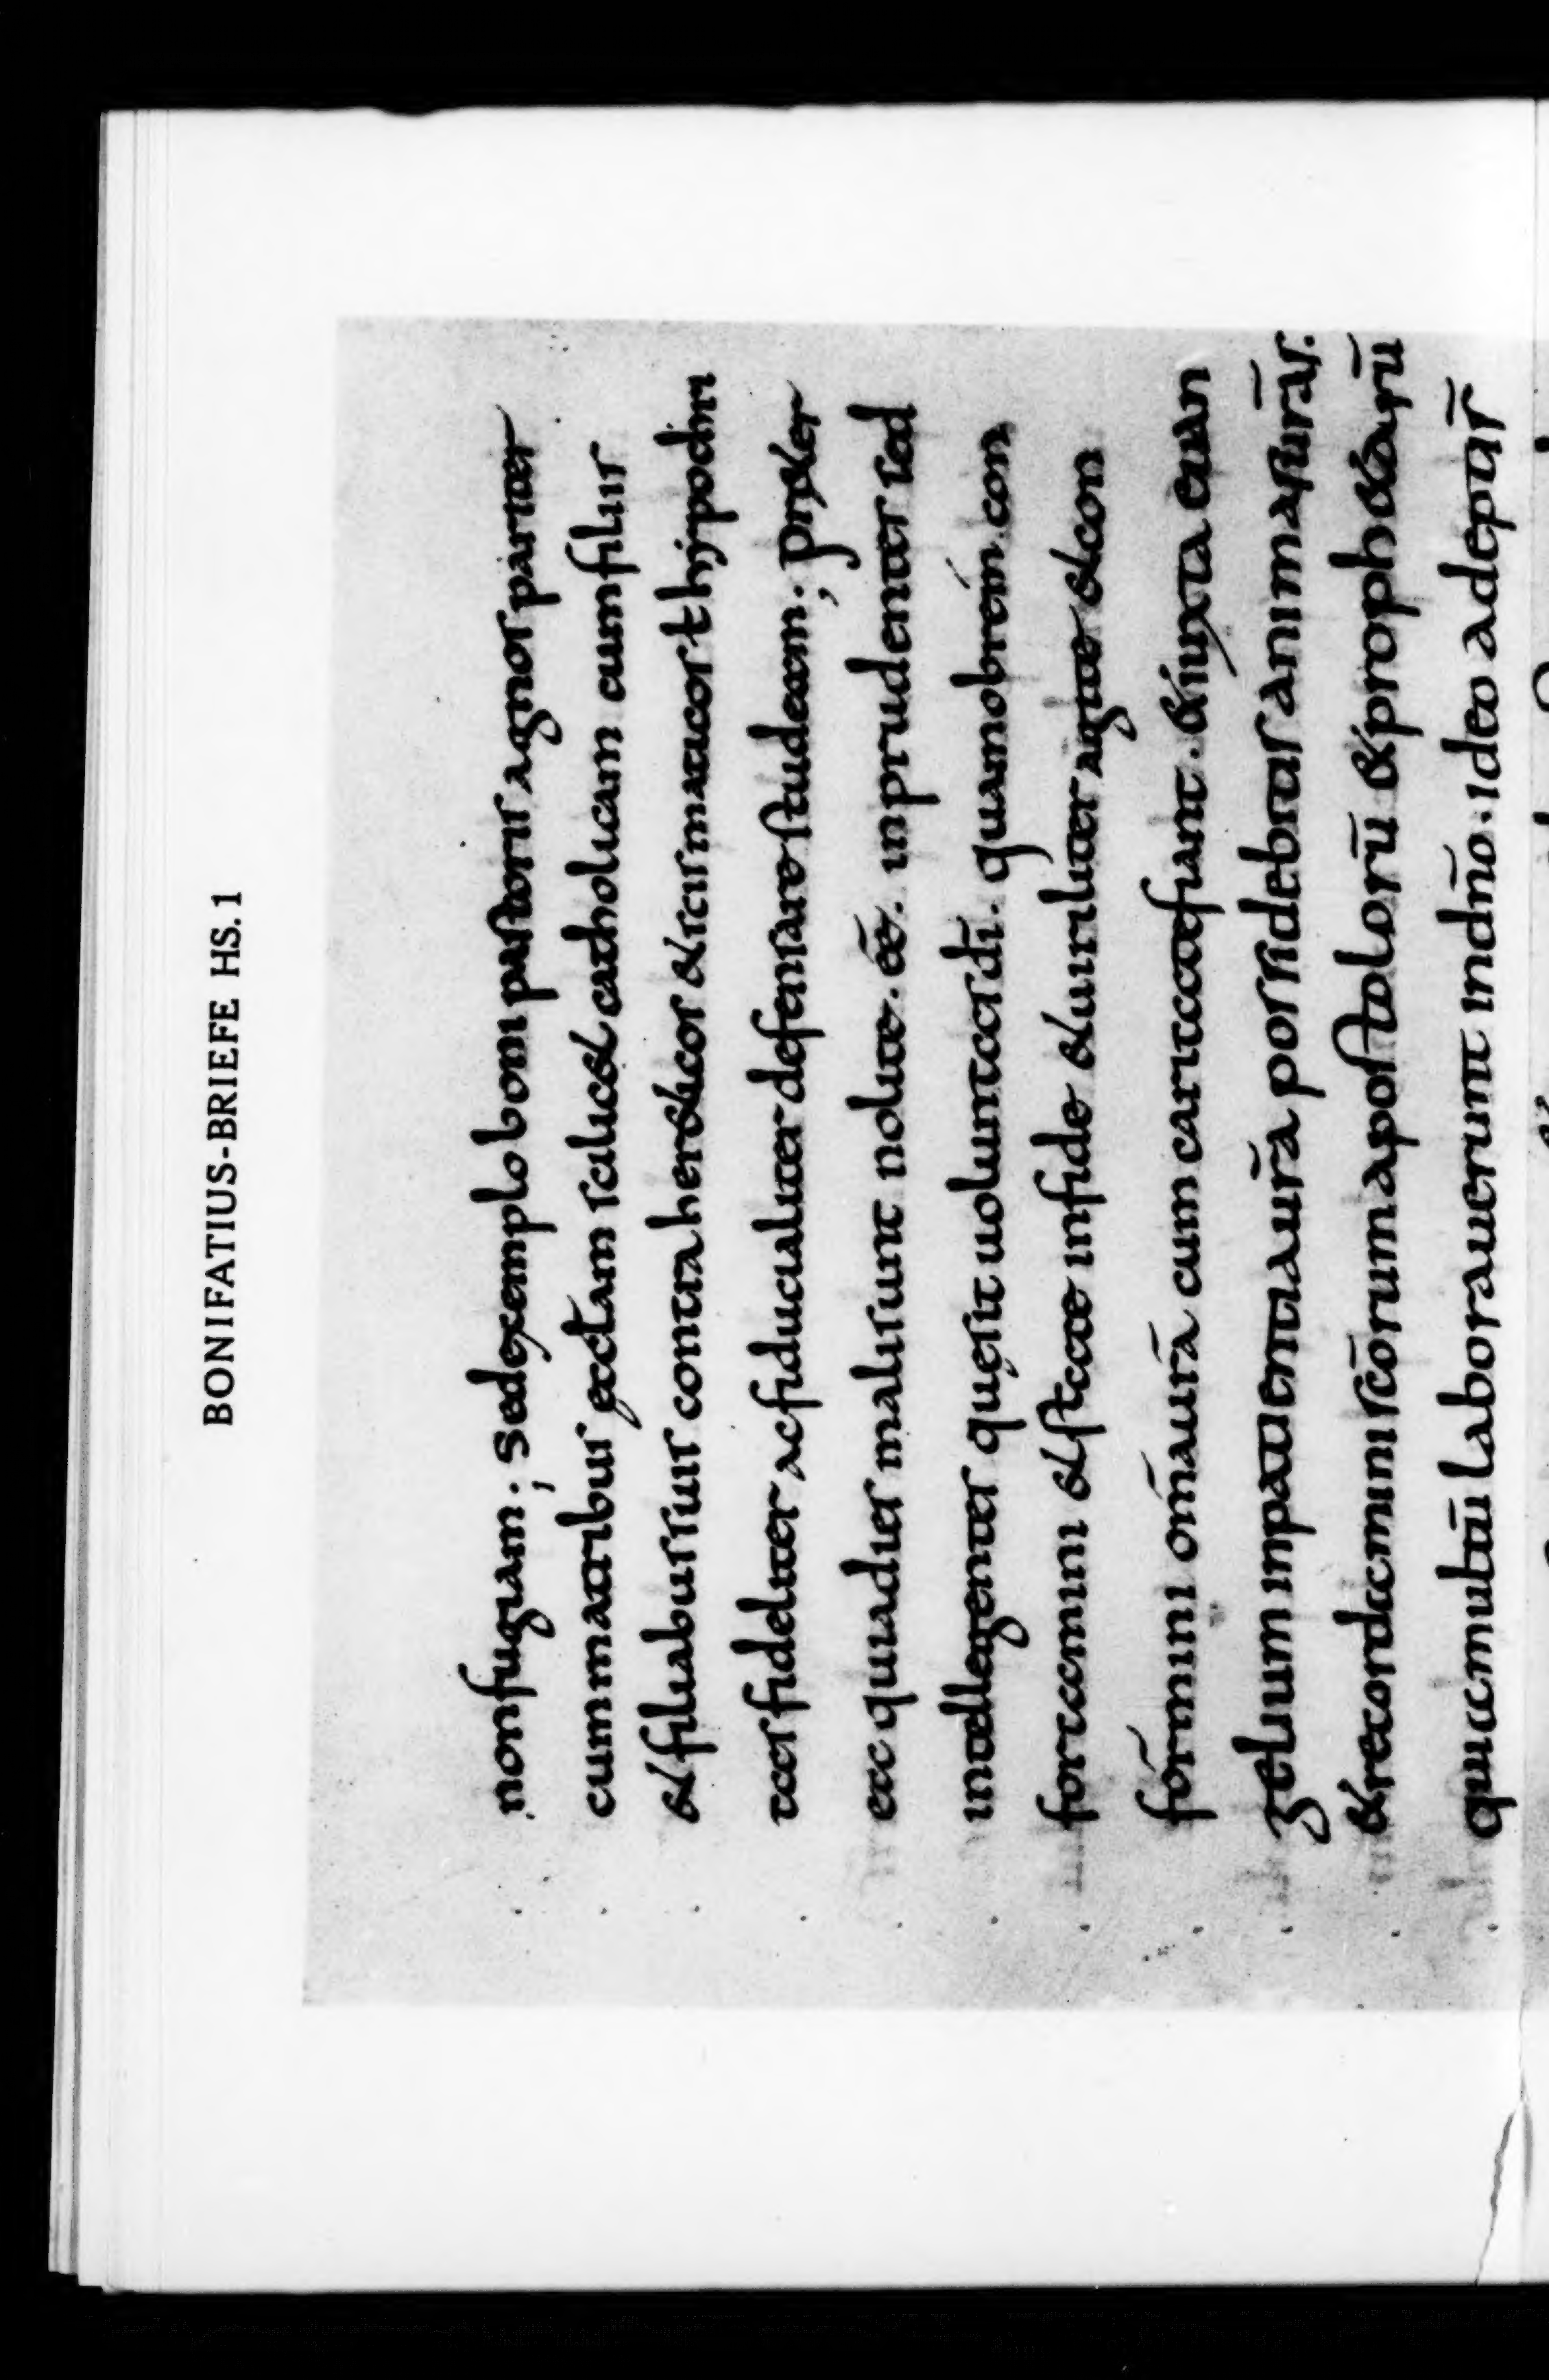 BONIFATIUS-BRIEFE HS. 1
non fugiam ·; Sed exemplo boni pastoris agnos pariter
cum matribus ęcctam scilicet catholicam cum filiis
et filiabus suis contra hereticos et scismaticos t hypochri
tas fideliter ac fiducialiter defensare studeam ·; propter
ea quia dies mali sunt nolite · ēē · inprudentes sed
intellegentes quę sit uoluntas dī · quamobrem con
fortamini et state in fide et uiriliter agite et con
formini om̄a ur̄a cum caritate fiant · et iuxta euan
gelium in patientia ur̄a possidebitis animas ur̄as ·
et recordamini sc̄orum apostolorū et prophetarū
quia multū laborauerunt in dn̄o · ideo adepti s̄